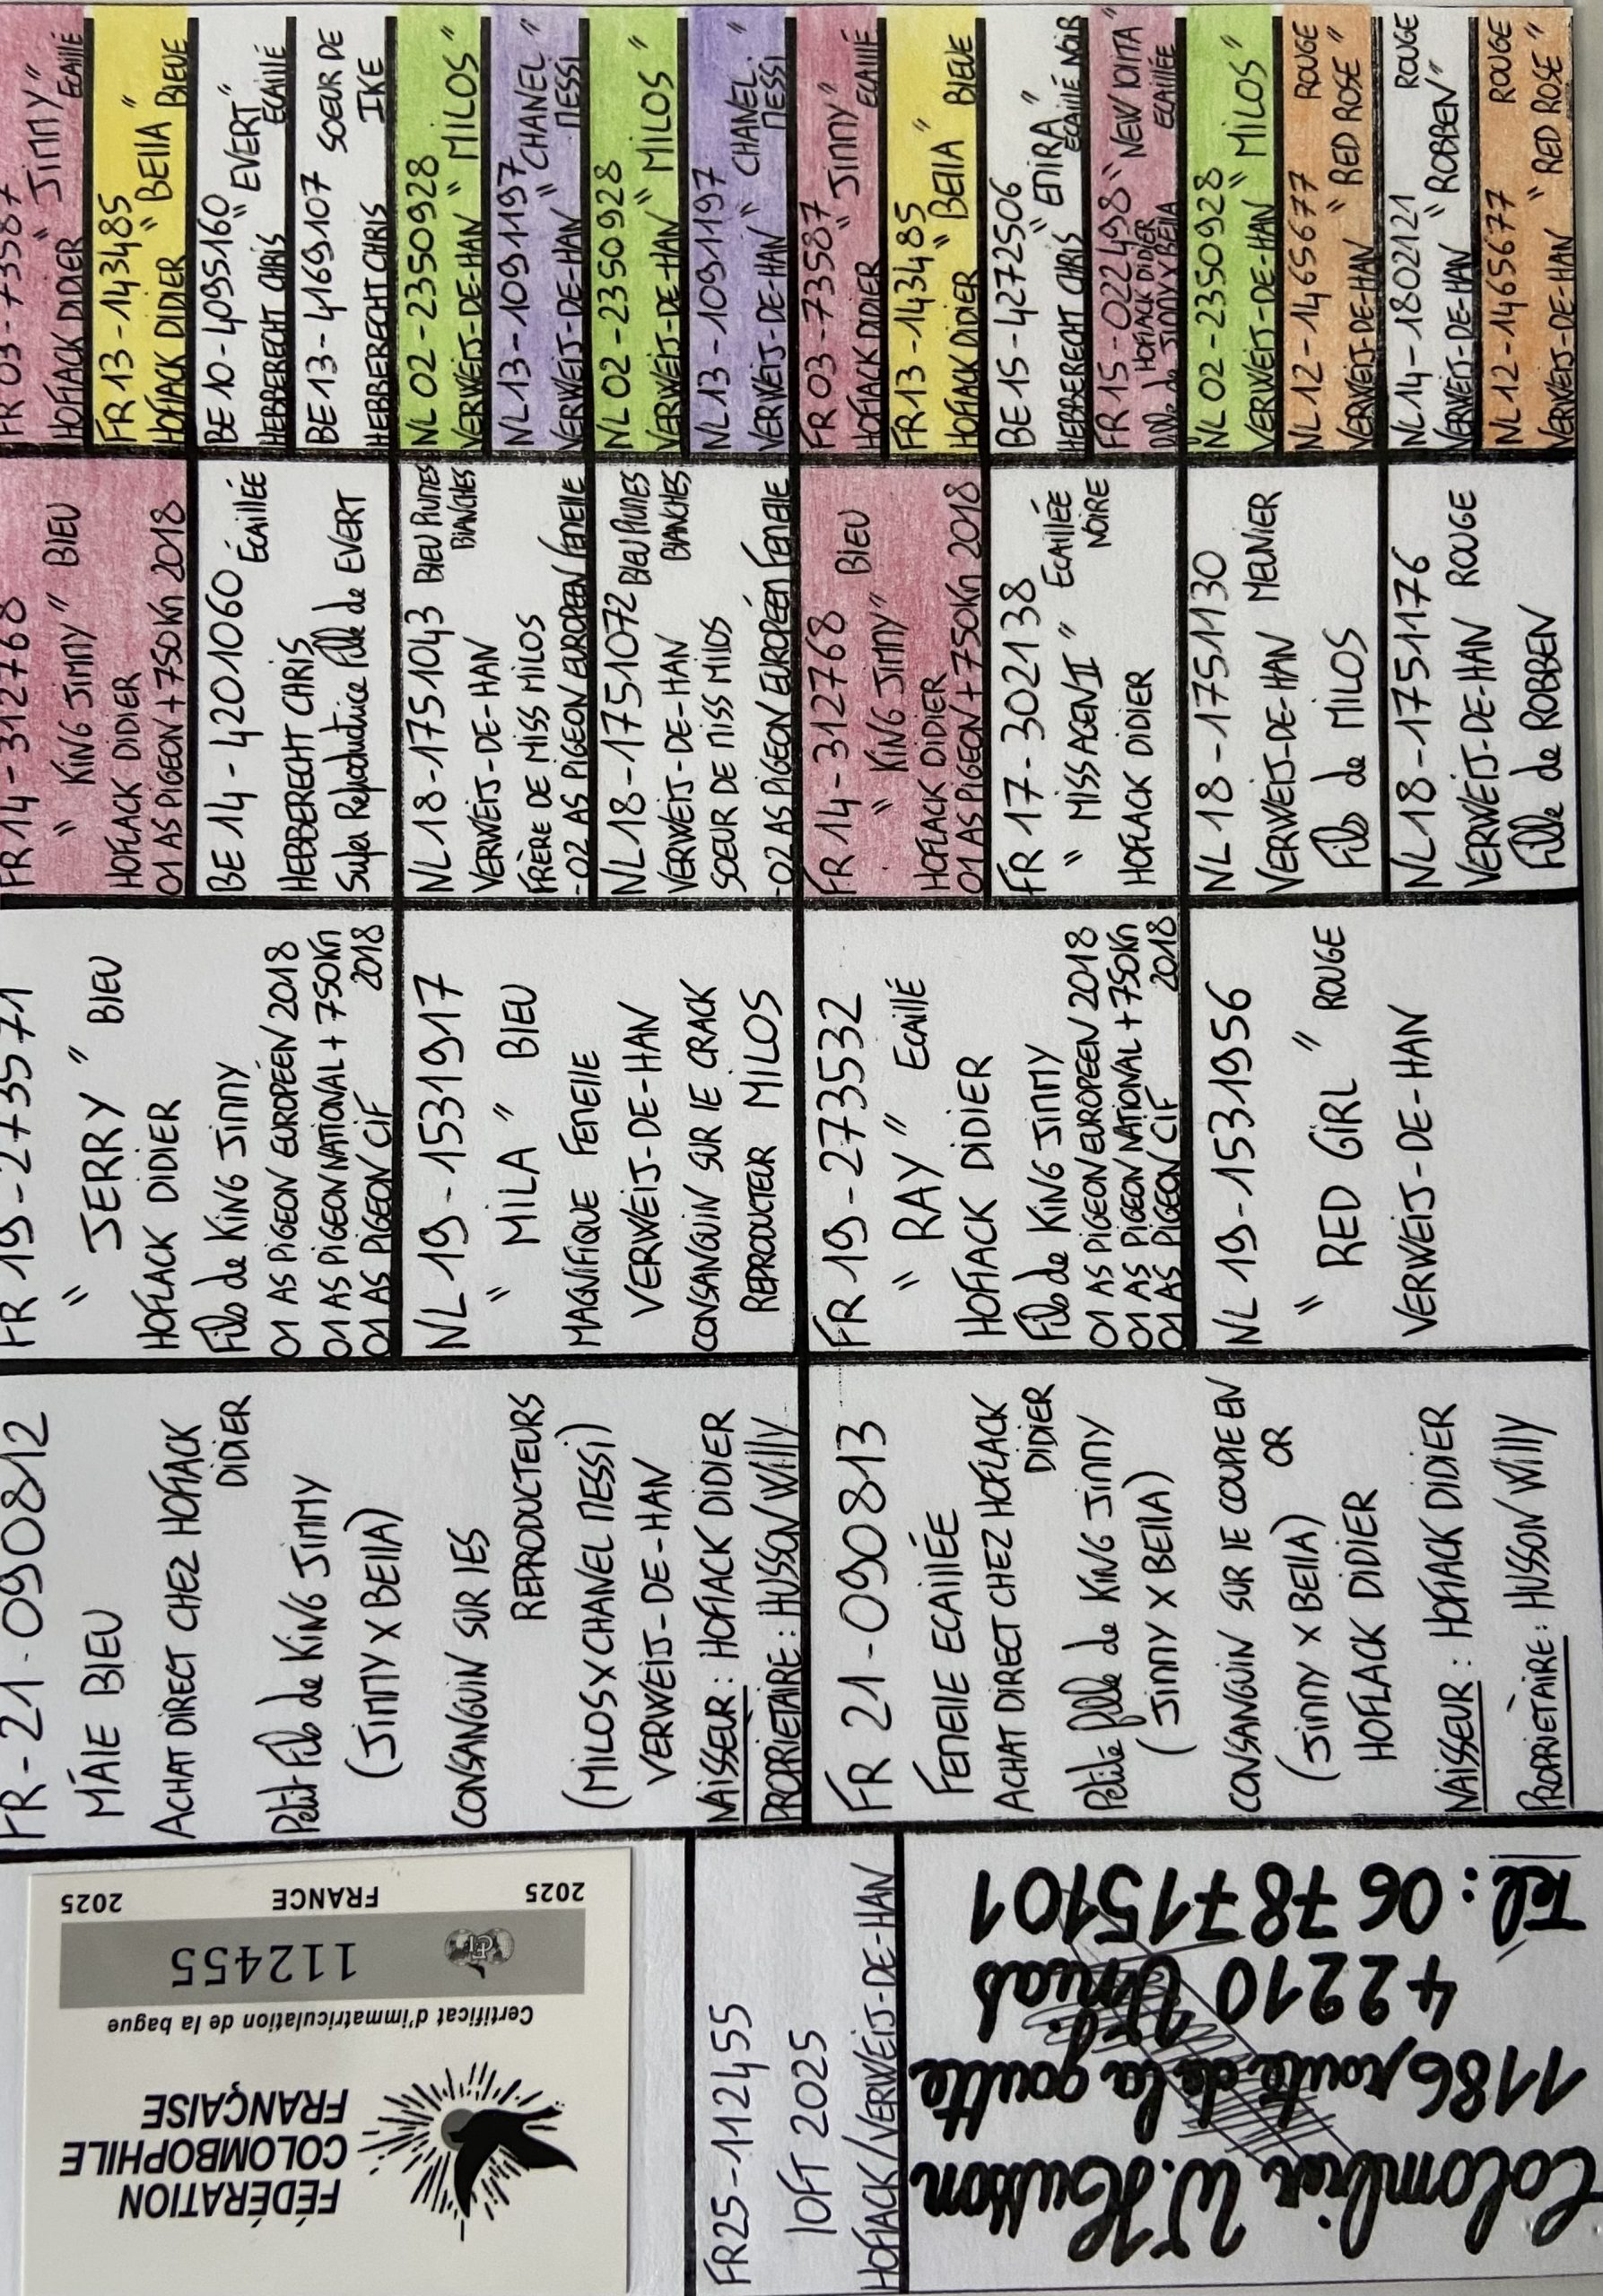 FÉDÉRATION
COLOMBOPHILE
FRANÇAISE
Certificat d'immatriculation de la bague
112455
2025 FRANCE 2025
FR25-112455
LOFT 2025
HOFLACK/VERWEIJ-DE-HAN
Colombier W. Husson
1186, route de la goutte
42210 Unias
Tel: 0678715101
FR-21-090812
MÂLE BLEU
ACHAT DIRECT CHEZ HOFLACK
DIDIER
Petit Fils de KING JIMMY
(JIMMY X BELLA)
CONSANGUIN SUR LES
REPRODUCTEURS
(MILOS X CHANEL MESSI)
VERWEIJ-DE-HAN
NAISSEUR: HOFLACK DIDIER
PROPRIETAIRE: HUSSON Willy
FR 21-090813
FEMELLE ECAILLÉE
ACHAT DIRECT CHEZ HOFLACK
DIDIER
Petite fille de KING JIMMY
(JIMMY X BELLA)
CONSANGUIN SUR LE COUPLE EN
OR
(JIMMY X BELLA)
HOFLACK DIDIER
NAISSEUR: HOFLACK DIDIER
PROPRIÉTAIRE: HUSSON Willy
FR 19-273571
" JERRY " BLEU
HOFLACK DIDIER
Fils de KING JIMMY
01 AS PIGEON EUROPÉEN 2018
01 AS PIGEON NATIONAL + 750Km
2018
01 AS PIGEON CIF
NL 19-1531917
" MILA " BLEU
MAGNIFIQUE FEMELLE
VERWEIJ-DE-HAN
CONSANGUIN SUR LE CRACK
REPRODUCTEUR MILOS
FR 19-273532
" RAY " ECAILLÉ
HOFLACK DIDIER
Fils de KING JIMMY
01 AS PIGEON EUROPEEN 2018
01 AS PIGEON NATIONAL + 750Km
2018
01 AS PIGEON CIF
NL 19-1531956
" RED GIRL " ROUGE
VERWEIJ-DE-HAN
FR 14-312768
" KING JIMMY " BLEU
HOFLACK DIDIER
01 AS PIGEON + 750Km 2018
BE 14-4201060 ÉCAILLÉE
HEBBERECHT CHRIS
Super Reproductrice Fille de EVERT
NL 18-1751043 BLEU PLUMES
BLANCHES
VERWEIJ-DE-HAN
FRÈRE DE MISS MILOS
-02 AS PIGEON EUROPÉEN FEMELLE
NL 18-1751072 BLEU PLUMES
BLANCHES
VERWEIJ-DE-HAN
SOEUR DE MISS MILOS
-02 AS PIGEON EUROPÉEN FEMELLE
FR 14-312768 BLEU
" KING JIMMY "
HOFLACK DIDIER
01 AS PIGEON + 750Km 2018
FR 17-302138
" MISS AGEN II " ECAILLÉE
NOIRE
HOFLACK DIDIER
NL 18-1751130
VERWEIJ-DE-HAN MEUNIER
Fils de MILOS
NL 18-1751176
VERWEIJ-DE-HAN ROUGE
Fille de ROBBEN
FR 03-73587
HOFLACK DIDIER " JIMMY " ECAILLÉ
FR 13-143485
HOFLACK DIDIER " BELLA " BLEUE
BE 10-4095160
HEBBERECHT CHRIS " EVERT " ECAILLÉ
BE 13-4169107 SOEUR DE
HEBBERECHT CHRIS IKE
NL 02-2350928
VERWEIJ-DE-HAN " MILOS "
NL 13-1091197
VERWEIJ-DE-HAN " CHANEL " MESSI
NL 02-2350928
VERWEIJ-DE-HAN " MILOS "
NL 13-1091197
VERWEIJ-DE-HAN " CHANEL " MESSI
FR 03-73587
HOFLACK DIDIER " JIMMY " ECAILLÉ
FR 13-143485
HOFLACK DIDIER " BELLA " BLEUE
BE 15-4272506
HEBBERECHT CHRIS " EMIRA " ECAILLÉ NOIR
FR 15-022498 " NEW LOLITA "
HOFLACK DIDIER ECAILLÉE
fille de JIMMY X BELLA
NL 02-2350928
VERWEIJ-DE-HAN " MILOS "
NL 12-1465677 ROUGE
VERWEIJ-DE-HAN " RED ROSE "
NL 14-1802121 ROUGE
VERWEIJ-DE-HAN " ROBBEN "
NL 12-1465677 ROUGE
VERWEIJ-DE-HAN " RED ROSE "